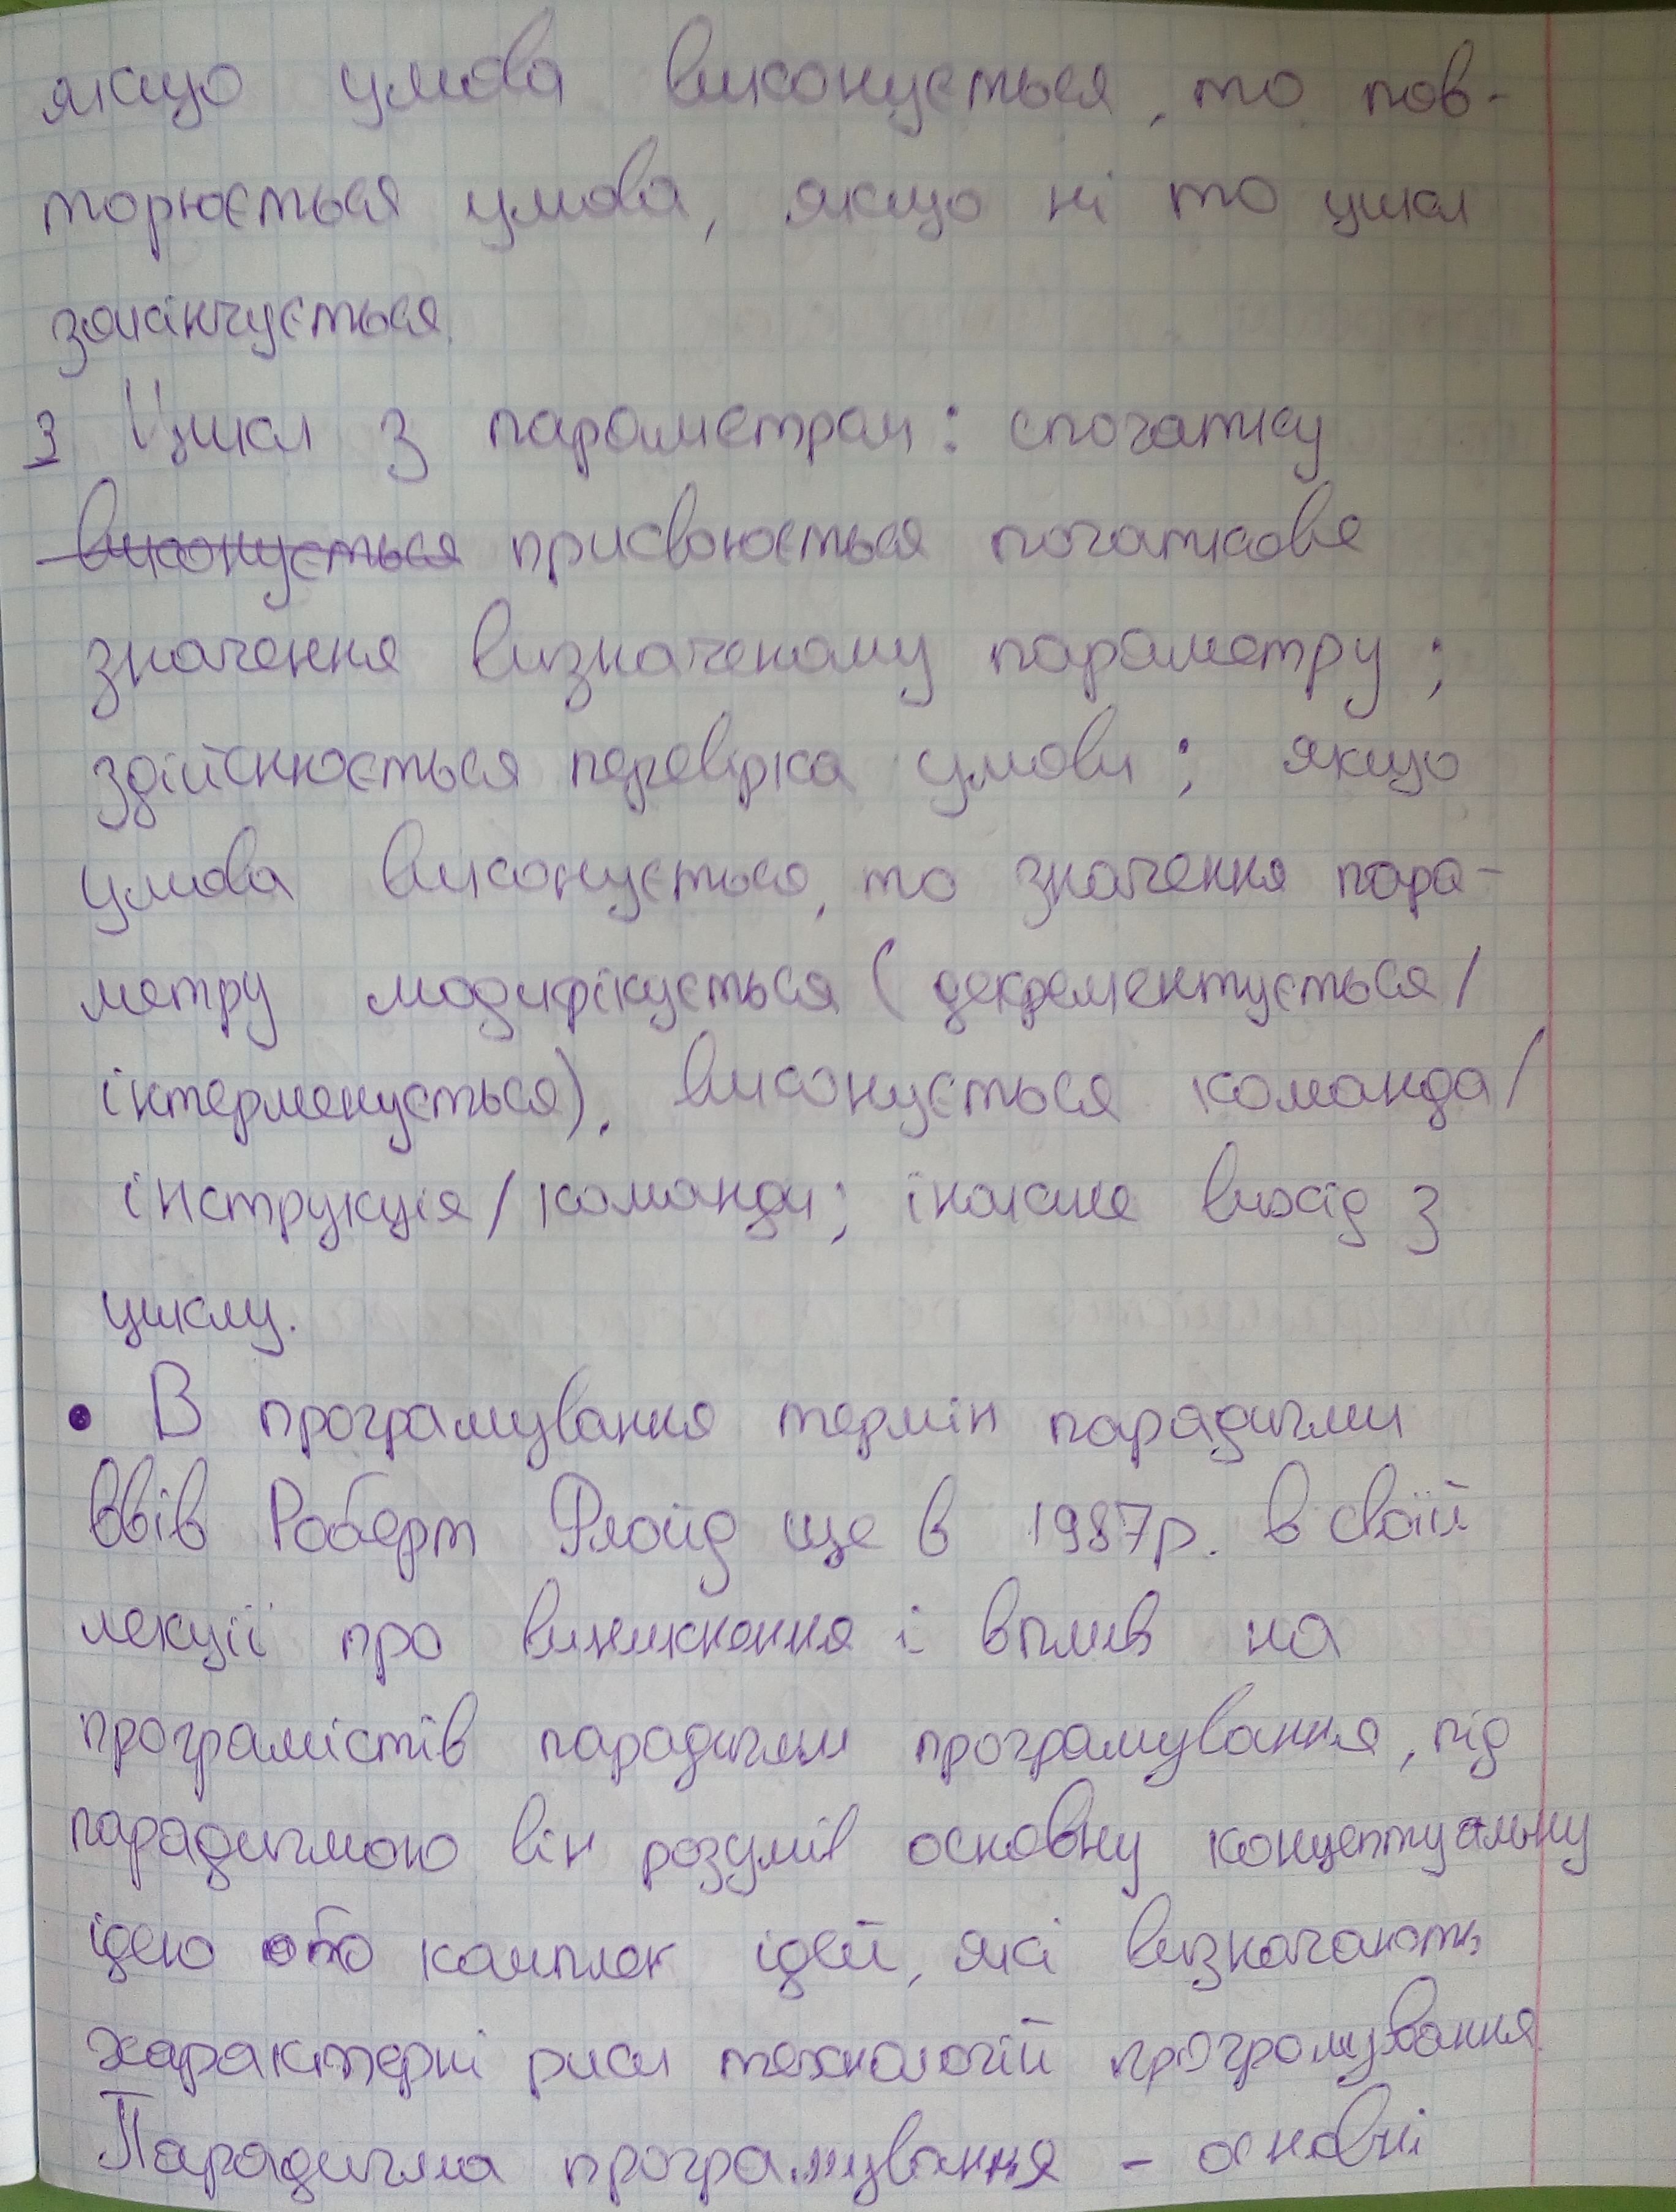 якщо умова виконується, то пов-
торюється умова, якщо ні то цикл
закінчується.
3 Цикл з параметрам: спочатку
виконується присвоюється початкове
значення визначеному параметру;
здійснюється перевірка умови; якщо
умова виконується, то значення пара-
метру модифікується (декрементується/
інтерменується), виконується команда/
інструкція/команди; інакше вихід з
циклу.
• В програмування термін парадигми
ввів Роберт Флойд ще в 1987р. в своїй
лекції про виникнення і вплив на
програмістів парадигми програмування, під
парадигмою він розумів основну концептуальну
ідею або комплек ідей, які визначають
характерні риси технологій програмування.
Парадигма програмування - основні